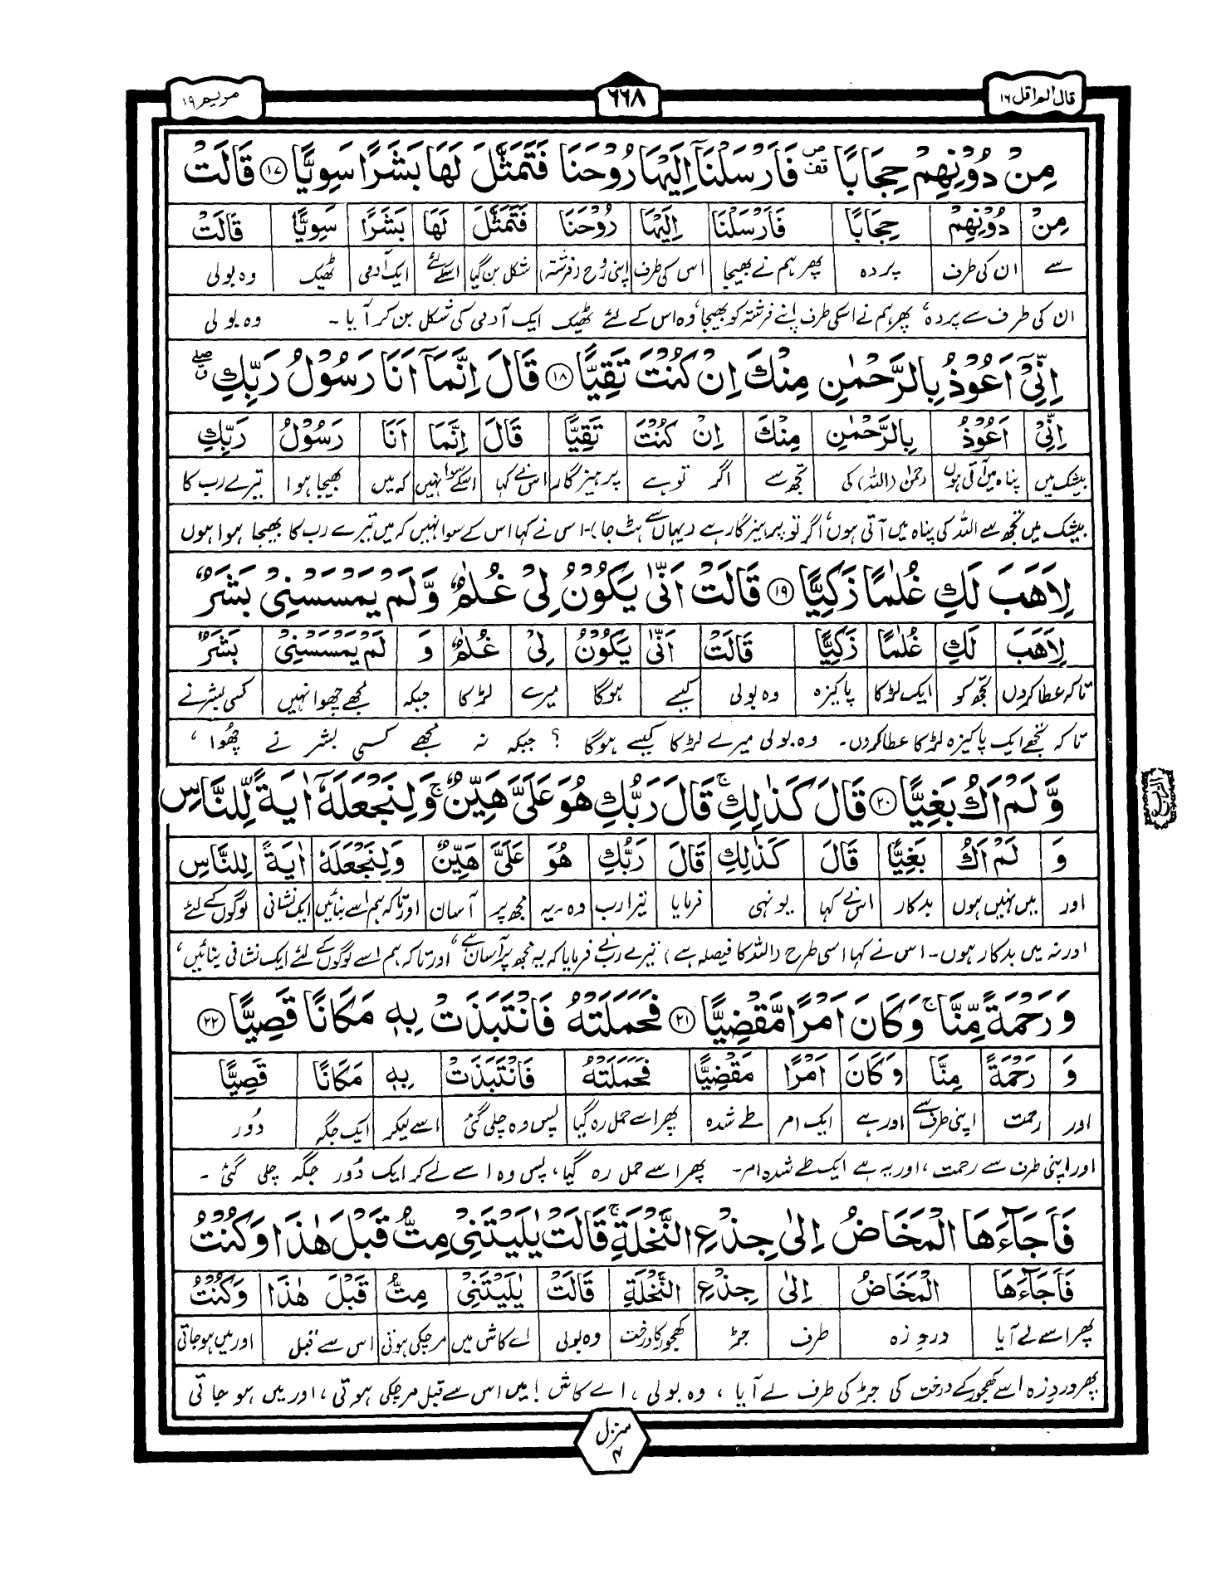 قال الم اقل ١٦
٦٦٨
مريم ١٩
مِنْ دُوْنِهِمْ حِجَابًا ۪ۖ فَاَرْسَلْنَاۤ اِلَيْهَا رُوْحَنَا فَتَمَثَّلَ لَهَا بَشَرًا سَوِيًّا ﴿۱۷﴾ قَالَتْ
مِنْ دُوْنِهِمْ حِجَابًا فَاَرْسَلْنَا اِلَيْهَا رُوْحَنَا فَتَمَثَّلَ لَهَا بَشَرًا سَوِيًّا قَالَتْ
سے ان کی طرف پردہ پھر ہم نے بھیجا اس کی طرف اپنی رُوح (فرشتہ) شکل بن گیا اسکے لئے ایک آدمی ٹھیک وہ بولی
ان کی طرف سے پردہ، پھر ہم نے اسکی طرف اپنے فرشتہ کو بھیجا، وہ اس کے لئے ٹھیک ایک آدمی کی شکل بن کر آیا۔ وہ بولی
اِنِّيْۤ اَعُوْذُ بِالرَّحْمٰنِ مِنْكَ اِنْ كُنْتَ تَقِيًّا ﴿۱۸﴾ قَالَ اِنَّمَاۤ اَنَا رَسُوْلُ رَبِّكِ ۖ
اِنِّيْ اَعُوْذُ بِالرَّحْمٰنِ مِنْكَ اِنْ كُنْتَ تَقِيًّا قَالَ اِنَّمَا اَنَا رَسُوْلُ رَبِّكِ
بیشک میں پناہ میں آتی ہوں رحمٰن (اللہ) کی تجھ سے اگر تو ہے پرہیزگار اس نے کہا اسکے سوا نہیں کہ میں بھیجا ہوا تیرے رب کا
بیشک میں تجھ سے اللہ کی پناہ میں آتی ہوں، اگر تو پرہیزگار ہے (یہاں سے ہٹ جا)۔ اس نے کہا اس کے سوا نہیں کہ میں تیرے رب کا بھیجا ہوا ہوں
لِاَهَبَ لَكِ غُلٰمًا زَكِيًّا ﴿۱۹﴾ قَالَتْ اَنّٰى يَكُوْنُ لِيْ غُلٰمٌ وَّلَمْ يَمْسَسْنِيْ بَشَرٌ
لِاَهَبَ لَكِ غُلٰمًا زَكِيًّا قَالَتْ اَنّٰى يَكُوْنُ لِيْ غُلٰمٌ وَ لَمْ يَمْسَسْنِيْ بَشَرٌ
تاکہ عطا کردں تجھ کو ایک لڑکا پاکیزہ وہ بولی کیسے ہوگا میرے لڑکا جبکہ مجھے چھوا نہیں کسی بشر نے
تاکہ تجھے ایک پاکیزہ لڑکا عطا کردں۔ وہ بولی میرے لڑکا کیسے ہوگا ؟ جبکہ نہ مجھے کسی بشر نے چھُوا ،
وَّ لَمْ اَكُ بَغِيًّا ﴿۲۰﴾ قَالَ كَذٰلِكِ ۚ قَالَ رَبُّكِ هُوَ عَلَيَّ هَيِّنٌ ۚ وَلِنَجْعَلَهٗۤ اٰيَةً لِّلنَّاسِ
وَ لَمْ اَكُ بَغِيًّا قَالَ كَذٰلِكِ قَالَ رَبُّكِ هُوَ عَلَيَّ هَيِّنٌ وَلِنَجْعَلَهٗ اٰيَةً لِلنَّاسِ
اور میں نہیں ہوں بدکار اس نے کہا یونہی فرمایا تیرا رب وہ ۔ یہ مجھ پر آسان اور تاکہ ہم اسے بنائیں ایک نشانی لوگوں کے لئے
اور نہ میں بدکار ہوں۔ اس نے کہا اسی طرح (اللہ کا فیصلہ ہے) تیرے رب نے فرمایا کہ یہ مجھ پر آسان ہے، اور تاکہ ہم اسے لوگوں کے لئے ایک نشانی بنائیں،
وَرَحْمَةً مِّنَّا ۚ وَكَانَ اَمْرًا مَّقْضِيًّا ﴿۲۱﴾ فَحَمَلَتْهُ فَانْتَبَذَتْ بِهٖ مَكَانًا قَصِيًّا ﴿۲۲﴾
وَ رَحْمَةً مِنَّا وَكَانَ اَمْرًا مَقْضِيًّا فَحَمَلَتْهُ فَانْتَبَذَتْ بِهٖ مَكَانًا قَصِيًّا
اور رحمت اپنی طرف سے اور ہے ایک امر طے شدہ پھر اسے حمل رہ گیا پس وہ چلی گئی اسے لیکر ایک جگہ دُور
اور اپنی طرف سے رحمت ، اور یہ ہے ایک طے شدہ امر۔ پھر اسے حمل رہ گیا، پس وہ اسے لے کر ایک دُور جگہ چلی گئی ۔
فَاَجَآءَهَا الْمَخَاضُ اِلٰى جِذْعِ النَّخْلَةِ ۚ قَالَتْ يٰلَيْتَنِيْ مِتُّ قَبْلَ هٰذَا وَكُنْتُ
فَاَجَآءَهَا الْمَخَاضُ اِلٰى جِذْعِ النَّخْلَةِ قَالَتْ يٰلَيْتَنِيْ مِتُّ قَبْلَ هٰذَا وَكُنْتُ
پھر اسے لے آیا دردِ زہ طرف جڑ کھجور کا درخت وہ بولی اے کاش میں مرچکی ہوتی اس سے قبل اور میں ہوجاتی
پھر دردِ زہ اسے کھجور کے درخت کی جڑ کی طرف لے آیا ، وہ بولی ، اے کاش ! میں اس سے قبل مرچکی ہوتی ، اور میں ہو جاتی
منزل ۴